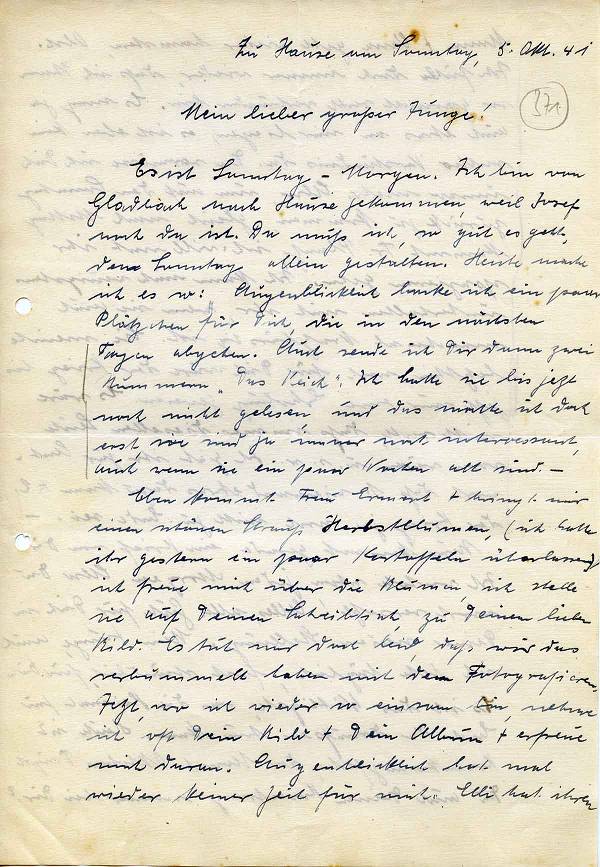 Zu Hause am Sonntag, 5. Okt. 41
371
Mein lieber großer Junge!
Es ist Sonntag-Morgen. Ich bin von
Gladbach nach Hause gekommen, weil Josef
noch da ist. Da muß ich, so gut es geht,
den Sonntag allein gestalten. Heute mache
ich es so: Augenblicklich backe ich ein paar
Plätzchen für Dich, die in den nächsten
Tagen abgehen. Auch sende ich Dir dann zwei
Nummern „Das Reich". Ich hatte sie bis jetzt
noch nicht gelesen und das möchte ich doch
erst, sie sind ja immer noch interessant,
auch wenn sie ein paar Wochen alt sind. –
Eben kommt Frau + bringt mir
einen schönen Strauß Herbstblumen, (ich hatte
ihr gestern ein paar Kartoffeln überlassen)
ich freue mich über die Blumen, ich stelle
sie auf Deinen Schreibtisch, zu Deinem lieben
Bild. Es tut mir doch leid, daß wir das
verbummelt haben mit dem Fotografieren.
Jetzt, wo ich wieder so einsam bin, nehme
ich oft Dein Bild + Dein Album + erfreue
mich daran. Augenblicklich hat mal
wieder keiner Zeit für mich. Elli hat ihren